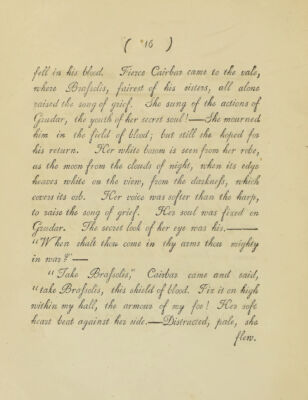 ( 16 )
fell in his blood. Fierce Cairbar came to the vale,
where Braſsolis, faireſt of his siſters, all alone
raised the song of grief. She sung of the actions of
Grudar, the youth of her secret soul!—She mourned
him in the field of blood; but still she hoped for
his return. Her white bosom is seen from her robe,
as the moon from the clouds of night, when its edge
heaves white on the view, from the darkneſs, which
covers its orb. Her voice was softer than the harp,
to raise the song of grief. Her soul was fixed on
Grudar. The secret look of her eye was his.———
"When shalt thou come in thy arms thou mighty
in war?"—
"Take Braſsolis," Cairbar came and said,
"take Braſsolis, this shield of blood. Fix it on high
within my hall, the armour of my foe! Her soft
heart beat against her side.—Distracted, pale, she
flew.